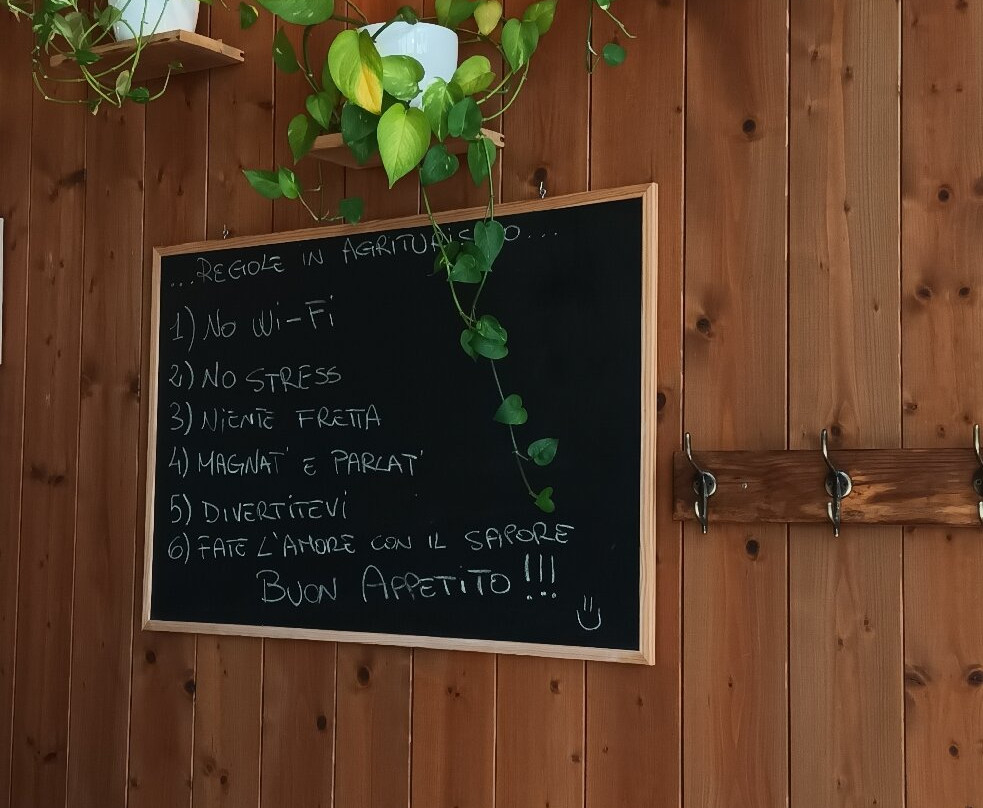 ...REGOLE IN AGRITURISMO...
1) No Wi-Fi
2) NO STRESS
3) NIENTE FRETTA
4) MAGNAT' E PARLAT'
5) DIVERTITEVI
6) FATE L'AMORE CON IL SAPORE
BUON APPETITO!!!